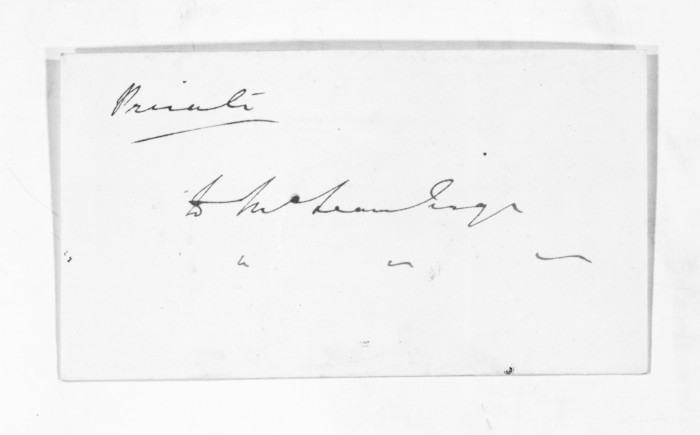 Private
D McLean Esqr
" " " "